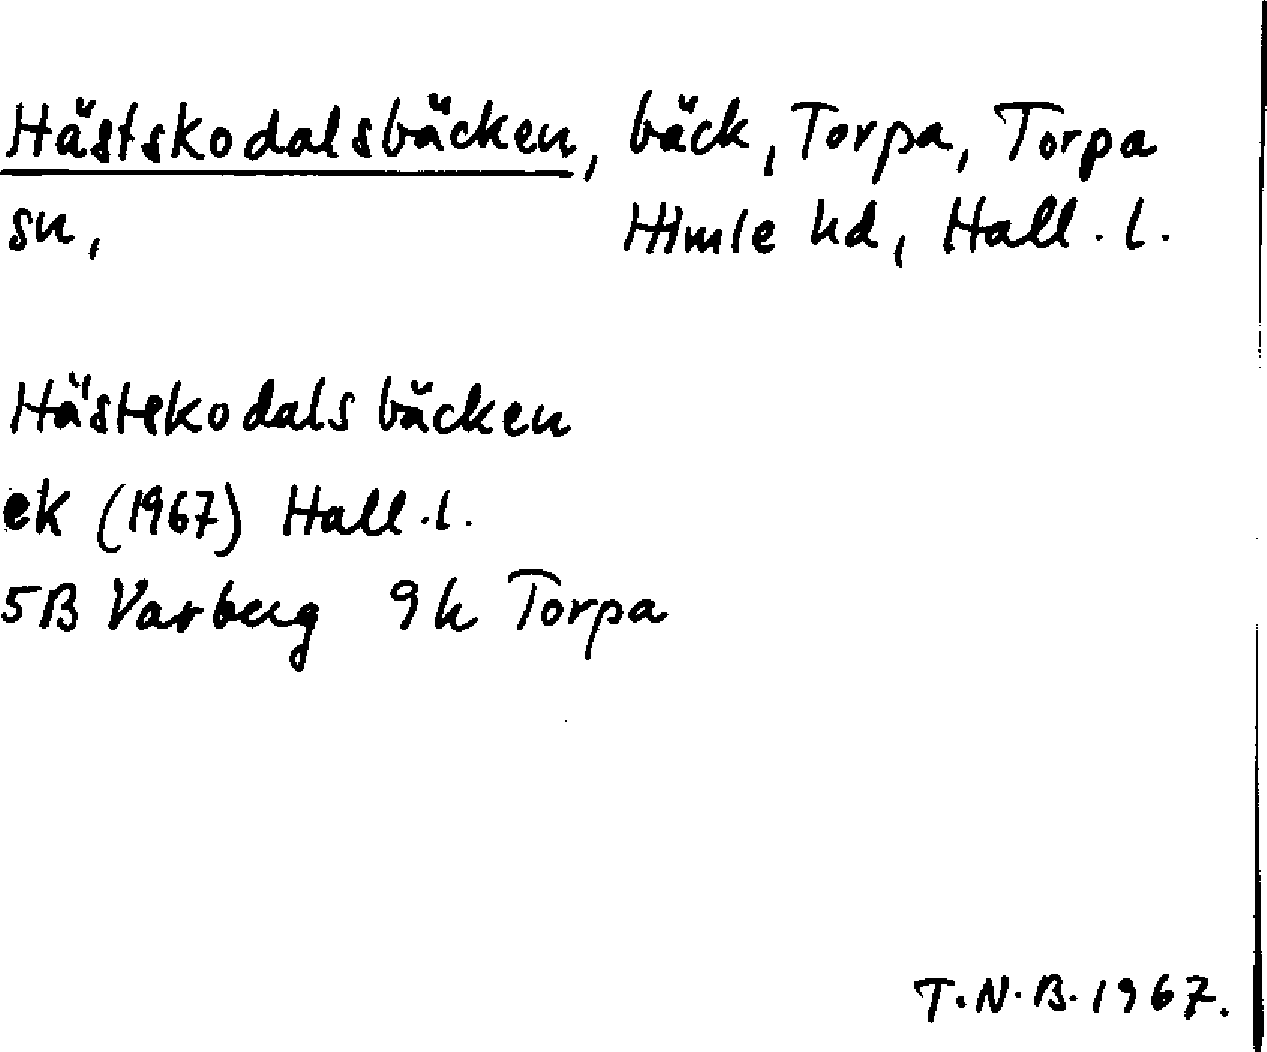 Hästskodalsbäcken, bäck, Torpa, Torpa
sn, Himle hd, Hall. l.
Hästskodalsbäcken
ek (1967) Hall. l.
5B Varberg 9h Torpa
T.N.B. 1967.